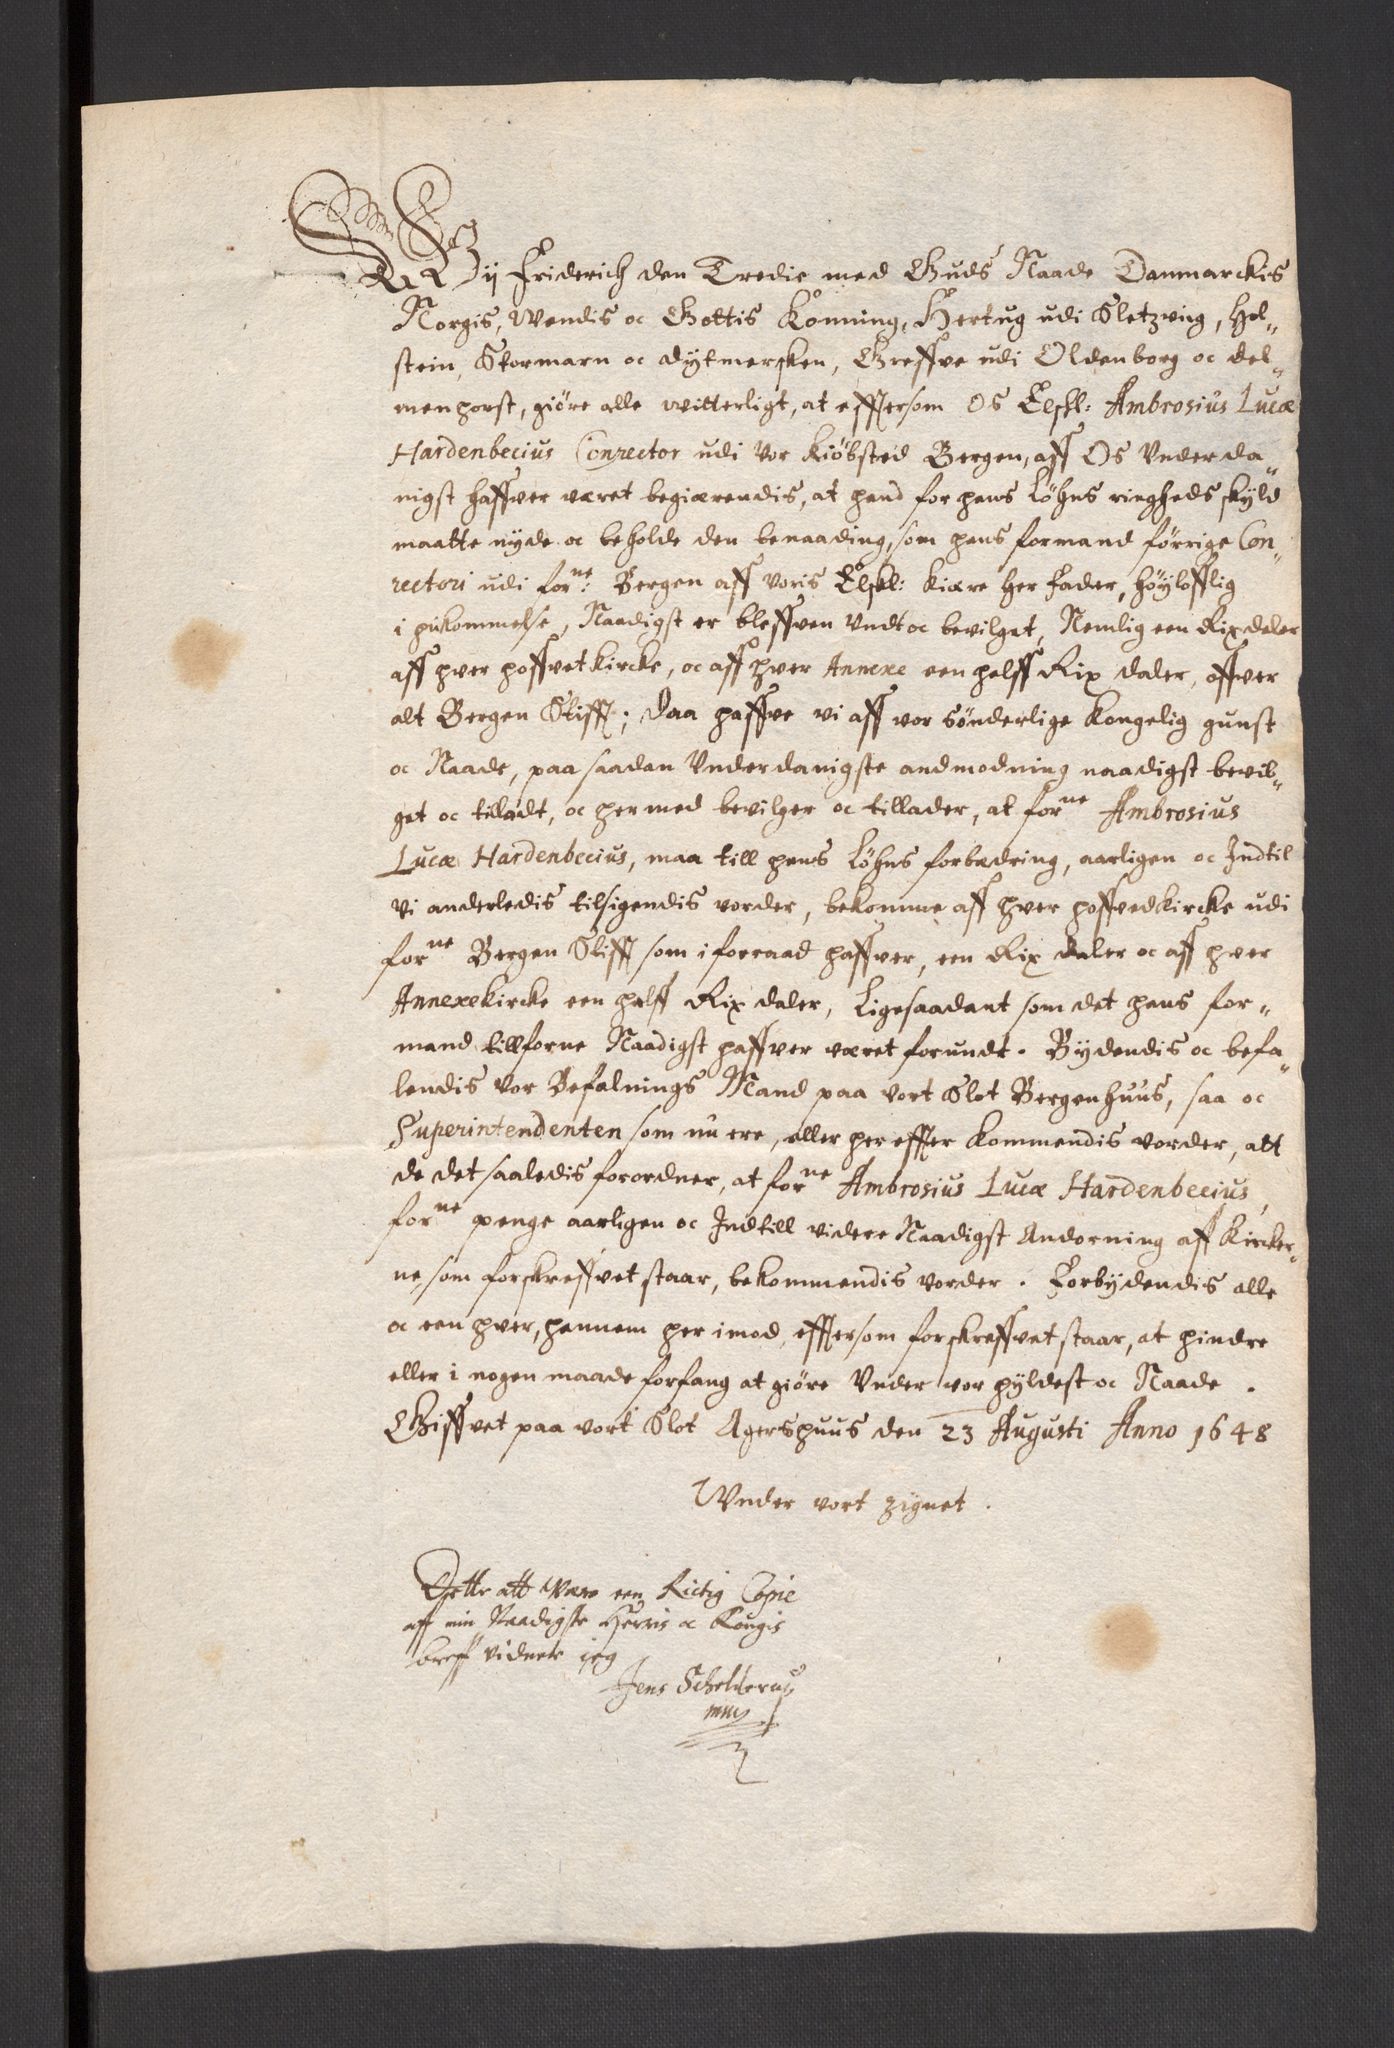 Wij Friderich den Tredie med Guds Naade Danmarckis
Norgis, Wendis oc Gottis Konning, Hertug udi Sletzvig, Hol-
stein, Stormarn oc Dytmersken, Greffve udi Oldenborg oc Del-
menhorst, giøre alle witterligt, at efftersom Os Elskl: Ambrosius Lucæ
Hardenbecius Conrector udi Vor Kiöbsted Bergen, aff Os Underda-
nigst haffver været begiærendis, at hand for hans Löhns ringheds skyld
maatte nyde oc beholde den benaading, som hans formand förrige Con-
rectori udi forne: Bergen aff Voris Elskl: Kiære Her Fader, Höylofflig
i hukommelse, Naadigst er bleffven Undt oc bevilget, Nemlig een Rixdaler
aff hver hoffvetkircke, oc aff hver Annexe een halff Rix daler, offver
alt Bergen Stifft; Daa haffve vi aff vor sönderlige Kongelig gunst
oc Naade, paa saadan Underdanigste andmodning naadigst bevil-
get oc tiladt, oc hermed bevilger oc tillader, at forne Ambrosius
Lucæ Hardenbecius, maa till hans Löhns forbædring, aarligen oc Indtil
vi anderledis tilsigendis vorder, bekomme aff hver hoffvedkircke udi
forne Bergen Stifft som i forraad haffver, een Rix daler oc aff hver
Annexekircke een halff Rix daler, Ligesaadant som det hans for-
mand tillforne Naadigst haffver været forundt. Bydendis oc befa-
lendis Vor Befalnings Mand paa Vort Slot Bergenhuus, saa oc
Superintendenten som nu ere, eller her effter Kommendis vorder, att
de det saaledis forordner, at forne Ambrosius Lucæ Hardenbecius,
forne penge aarligen oc Indtill videre Naadigst Andorning aff Kircker-
ne, som forskreffvet staar, bekommendis vorder. Forbydendis alle
oc een hver, hannem her imod, efftersom forskreffvet staar, at hindre
eller i nogen maade forfang at giöre Under vor hyldest oc Naade.
Giffvet paa vort Slot Agershuus den 23 Augusti Anno 1648
Under vort zignet.
Dette att være een Rictig Copie
aff min Naadigste Herris oc Kongis
breff vidner ieg
Jens Schelderup
mmp